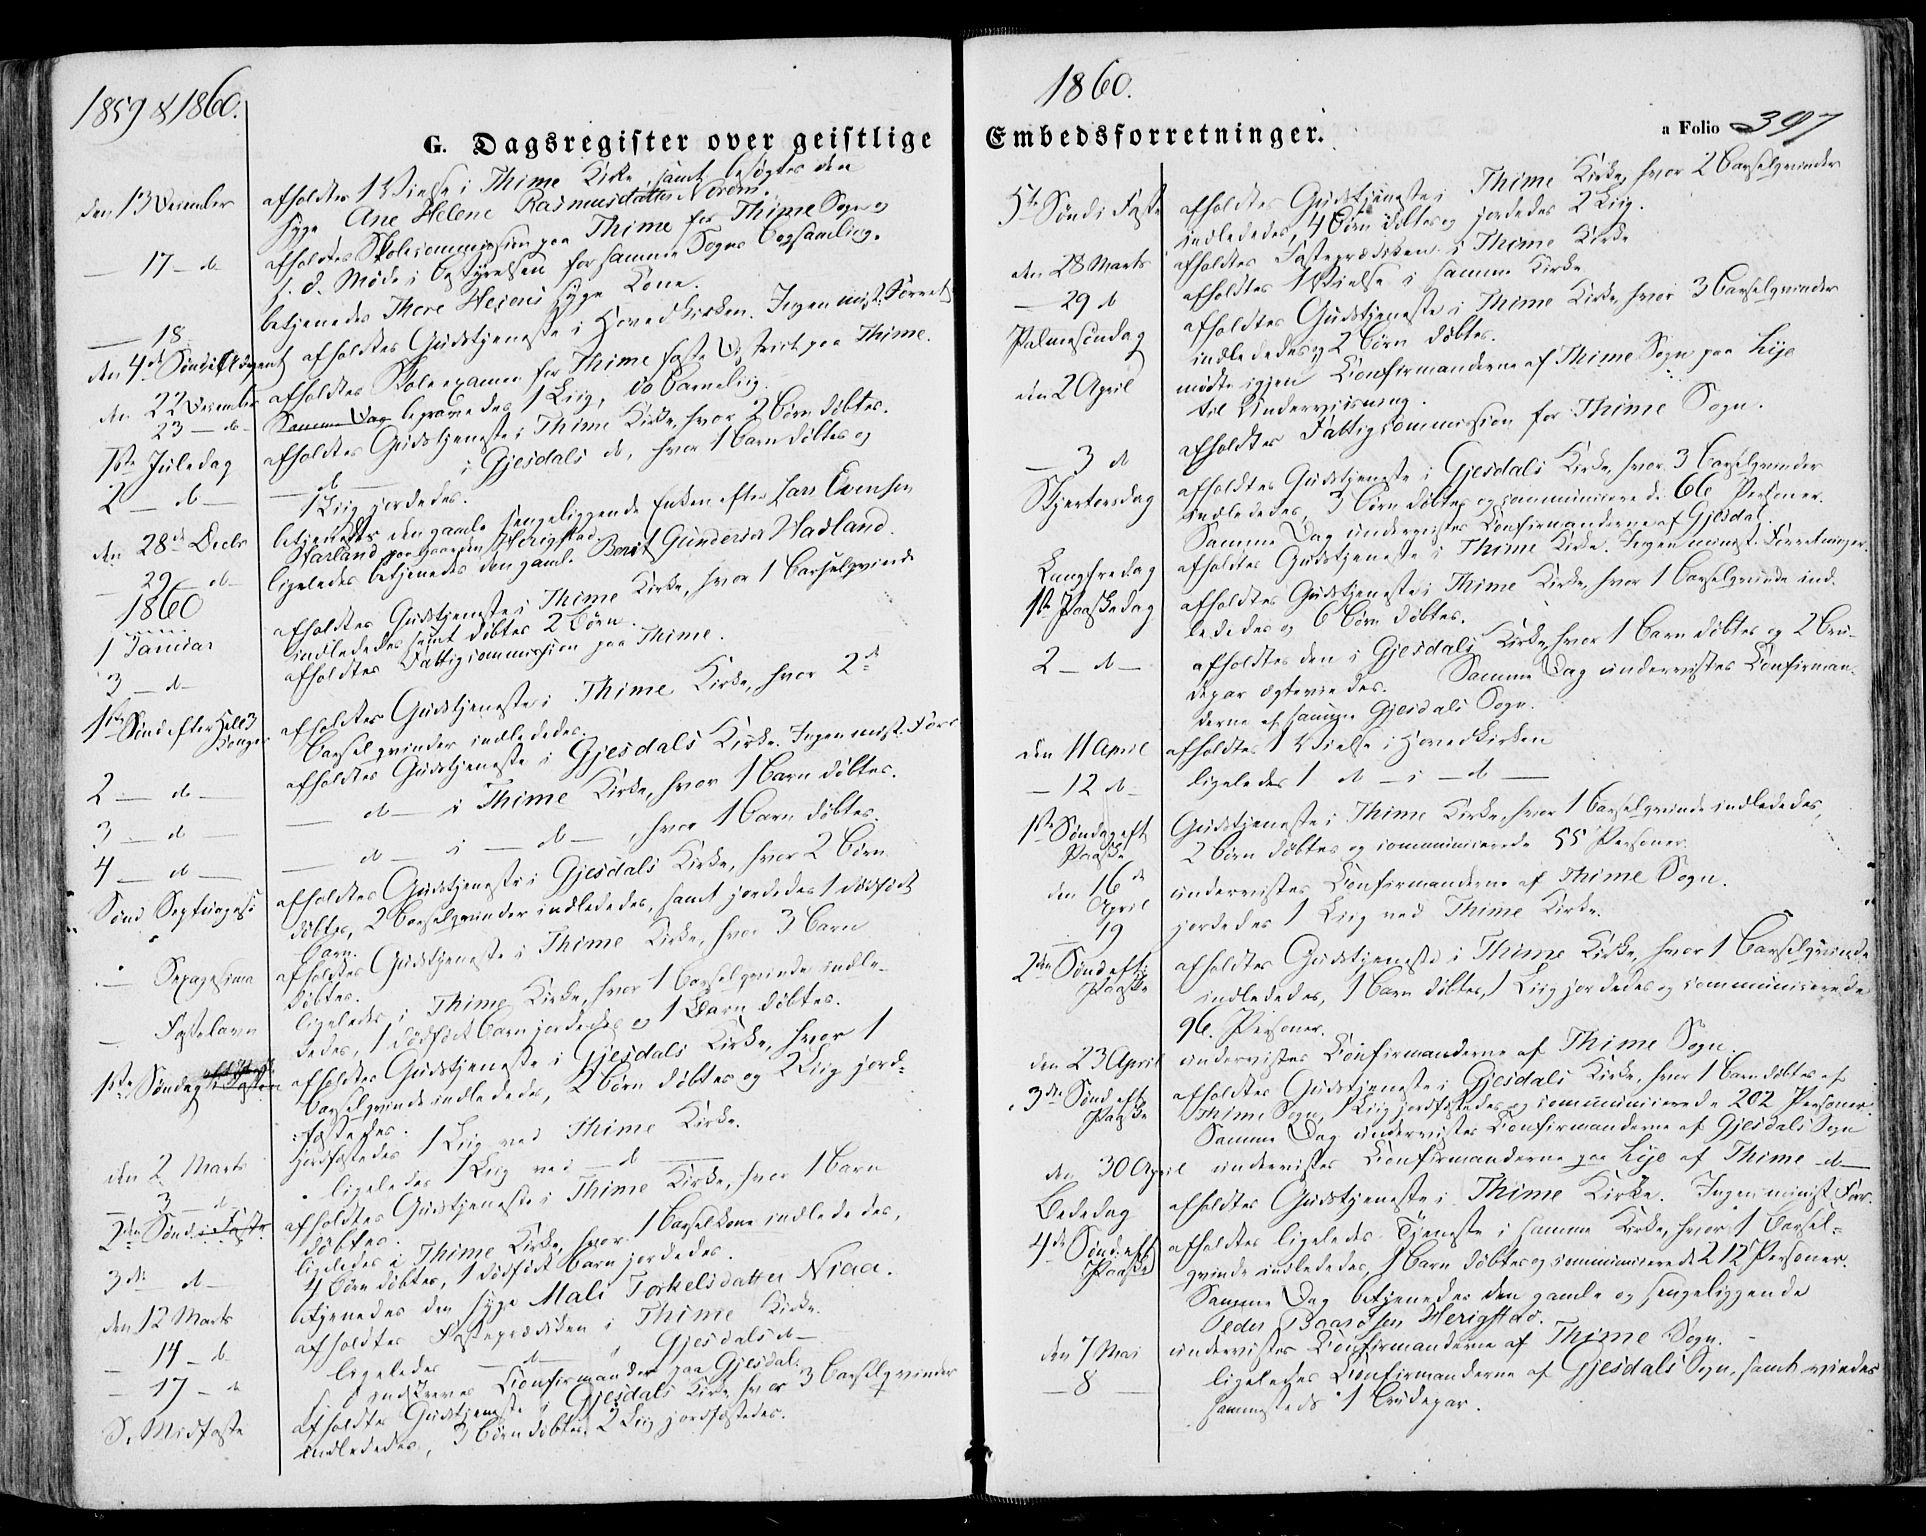 1859 & 1860.
G. Dagsregister over geistlige
den 13 December afholdtes 1 Vielse i Thime Kirke, samt besøgtes den
syge Ane Helene Rasmusdatter Norem.
— 17 – do afholdtes Skolecommission paa Thime for Thime Sogn og
s. d. Møde i Bestyrelsen for samme Sogns Bogsamling.
— 18 betjenedes Thore Heions syge Kone.
den 4de Sønd i Advent afholdtes Gudstjeneste i Hovedkirken. Ingen mist. Forret.
den 22 December afholdtes Skoleexamen for Thime faste District paa Thime.
23 – do – Samme Dag begravedes 1 Liig, do Barneliig.
1ste Juledag afholdtes Gudstjeneste i Thime Kirke, hvor 2 Børn døbtes.
2 – do — — do — i Gjesdals do, hvor 1 Barn døbtes og
1 Liig jordedes.
den 28de Decbr betjenedes den gamle sengeliggende Enken efter Lars Evensen
Harland paa Gaarden Herigstad.
— 29 do – ligeledes betjenedes den gamle Berit Gunderia Hadland.
1860
1 Januar afholdtes Gudstjeneste i Thime Kirke, hvor 1 Barselqvinde
indlededes samt døbtes 2 Børn.
3 – do – afholdtes Fattigcommission paa Thime.
1ste Sønd efter Hell 3 Konger afholdtes Gudstjeneste i Thime Kirke, hvor 2de
Barselqvinder indlededes.
2 — do — afholdtes Gudstjeneste i Gjesdals Kirke. Ingen mist. Forr
3 — do — — do – i Thime Kirke, hvor 1 Barn døbtes.
4 — do — — do – i — do —, hvor 1 Barn døbtes.
Sønd Septuages: afholdtes Gudstjeneste i Gjesdals Kirke, hvor 2 Børn
døbtes, 2 Barselqvinder indlededes, samt jordedes 1 dødfødt
Barn.
— Sexagesima afholdtes Gudstjeneste i Thime Kirke, hvor 3 Barn
døbtes.
— Fastelavn ligeledes i Thime Kirke, hvor 1 Barselqvinde indle-
dedes, 1 dødfødt Barn jordedes og 1 Barn døbtes.
1ste Søndag i Fasten afholdtes Gudstjeneste i Gjesdals Kirke, hvor 1
Barselqvinde indlededes, 2 Børn døbtes og 2 Liig jord-
fæstedes.
den 2 Marts jordfæstedes 1 Liig ved Thime Kirke.
— 3 – do ligeledes 1 Liig ved — do —
2den Sønd i Faste afholdtes Gudstjeneste i Thime Kirke, hvor 1 Barn
døbtes.
3die do — ligeledes i Thime Kirke, hvor 1 Barselkone indlededes,
4 Børn døbtes, 1 dødfødt Barn jordedes.
den 12 Marts betjenedes den syge Mali Torkelsdatter Niaa.
— 14 – do afholdtes Fasteprædiken i Thime Kirke.
— 17 – do ligeledes — do — i Gjesdals do –
s. d. indskreves Confirmander paa Gjesdal.
S. Midfaste afholdtes Gudstjeneste i Gjesdals Kirke, hvor 3 Barselqvinder
indlededes, 3 Børn døbtes, 2 Liig jordfæstedes.
1860.
Embedsforretninger. a Folio 397
5te Sønd i Faste afholdtes Gudstjeneste i Thime Kirke, hvor 2 Barselqvinder
indlededes, 4 Børn døbtes og jordedes 2 Liig.
den 28 Marts afholdtes Fasteprædiken i Thime Kirke
— 29 do afholdtes 1 Vielse i samme Kirke
Palmesøndag afholdtes Gudstjeneste i Thime Kirke, hvor 3 Barselqvinder
indlededes og 2 Børn døbtes.
den 2 April mødte igjen Confirmanderne af Thime Sogn paa Lye
til Underviisning.
— 3 do afholdtes Fattigcommission for Thime Sogn.
Skjertorsdag afholdtes Gudstjeneste i Gjesdals Kirke, hvor 3 Barselqvinder
indlededes, 3 Børn døbtes og communicerede 66 Personer.
Samme Dag undervistes Confirmanderne af Gjesdal.
Langfredag afholdtes Gudstjeneste i Thime Kirke. Ingen minist. Forretninger.
1ste Paaskedag afholdtes Gudstjeneste i Thime Kirke, hvor 1 Barselqvinde ind-
lededes og 6 Børn døbtes.
2 – do – afholdtes den i Gjesdals Kirke, hvor 1 Barn døbtes og 2 Bru-
depar ægteviedes. Samme Dag undervistes Confirman-
derne af samme Gjesdals Sogn.
den 11 April afholdtes 1 Vielse i Hovedkirken
— 12 do – ligeledes 1 do – i – do —
1ste Søndag eft Paaske Gudstjeneste i Thime Kirke, hvor 1 Barselqvinde indlededes,
2 Børn døbtes og communicerede 55 Personer.
den 16de April undervistes Confirmanderne af Thime Sogn.
— 19 jordedes 1 Liig ved Thime Kirke.
2den Sønd eft: Paaske afholdtes Gudstjeneste i Thime Kirke, hvor 1 Barselqvinde
indlededes, 1 Barn døbtes, 1 Liig jordedes og communicerede
96 Personer.
den 23 April undervistes Confirmanderne af Thime Sogn.
3die Sønd eft Paaske afholdtes Gudstjeneste i Gjesdals Kirke, hvor 1 Barn døbtes af
Thime Sogn, 1 Liig jordfæstedes og communicerede 202 Personer.
Samme Dag undervistes Confirmanderne af Gjesdals Sogn
den 30 April undervistes Confirmanderne paa Lye af Thime – do —
Bededag afholdtes Gudstjeneste i Thime Kirke. Ingen minist. For.
4de Sønd: eft Paaske afholdtes ligeledes Tjeneste i samme Kirke, hvor 1 Barsel-
qvinde indlededes, 1 Barn døbtes og communicerede 212 Personer.
Samme Dag betjenedes den gamle og sengeliggende
Peder Baardsen Herigstad.
den 7 Mai undervistes Confirmanderne af Thime Sogn.
— 8 ligeledes Confirmanderne af Gjesdals Sogn, samt viedes
sammesteds 1 Brudepar.